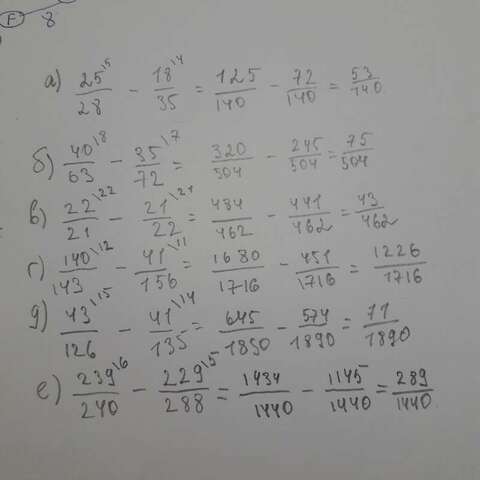 F
8
а) 25\5/28 - 18\4/35 = 125/140 - 72/140 = 53/140
б) 40\8/63 - 35\7/72 = 320/504 - 245/504 = 75/504
в) 22\22/21 - 21\21/22 = 484/462 - 441/462 = 43/462
г) 140\12/143 - 41\11/156 = 1680/1716 - 451/1716 = 1226/1716
д) 43\15/126 - 41\14/135 = 645/1890 - 574/1890 = 71/1890
е) 239\6/240 - 229\5/288 = 1434/1440 - 1145/1440 = 289/1440